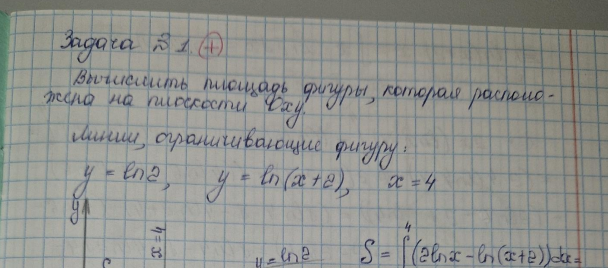 Задача №1. +
Вычислить площадь фигуры, которая располо-
жена на плоскости Oxy.
Линии, ограничивающие фигуру:
y = ln2, y = ln(x+2), x = 4
y x=4 y = ln2 S = ∫⁴(2lnx - ln(x+2))dx =